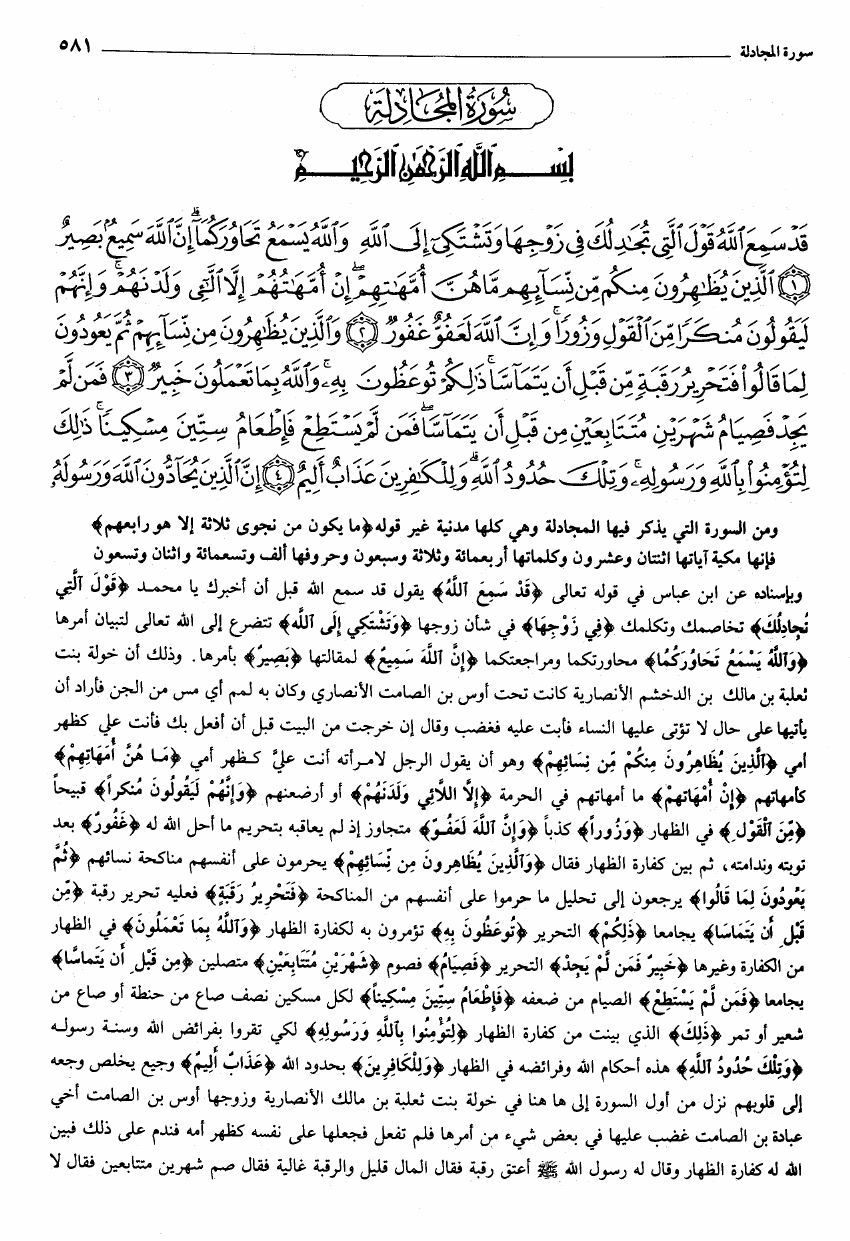 سورة المجادلة ٥٨١
سُورَةُ المُجَادِلَةِ
بِسْمِ اللَّهِ الرَّحْمَٰنِ الرَّحِيمِ
قَدْ سَمِعَ اللَّهُ قَوْلَ الَّتِي تُجَادِلُكَ فِي زَوْجِهَا وَتَشْتَكِي إِلَى اللَّهِ وَاللَّهُ يَسْمَعُ تَحَاوُرَكُمَا ۚ إِنَّ اللَّهَ سَمِيعٌ بَصِيرٌ
﴿١﴾ الَّذِينَ يُظَاهِرُونَ مِنكُم مِّن نِّسَائِهِم مَّا هُنَّ أُمَّهَاتِهِمْ ۖ إِنْ أُمَّهَاتُهُمْ إِلَّا اللَّائِي وَلَدْنَهُمْ ۚ وَإِنَّهُمْ
لَيَقُولُونَ مُنكَرًا مِّنَ الْقَوْلِ وَزُورًا ۚ وَإِنَّ اللَّهَ لَعَفُوٌّ غَفُورٌ ﴿٢﴾ وَالَّذِينَ يُظَاهِرُونَ مِن نِّسَائِهِمْ ثُمَّ يَعُودُونَ
لِمَا قَالُوا فَتَحْرِيرُ رَقَبَةٍ مِّن قَبْلِ أَن يَتَمَاسَّا ۚ ذَٰلِكُمْ تُوعَظُونَ بِهِ ۚ وَاللَّهُ بِمَا تَعْمَلُونَ خَبِيرٌ ﴿٣﴾ فَمَن لَّمْ
يَجِدْ فَصِيَامُ شَهْرَيْنِ مُتَتَابِعَيْنِ مِن قَبْلِ أَن يَتَمَاسَّا ۖ فَمَن لَّمْ يَسْتَطِعْ فَإِطْعَامُ سِتِّينَ مِسْكِينًا ۚ ذَٰلِكَ
لِتُؤْمِنُوا بِاللَّهِ وَرَسُولِهِ ۚ وَتِلْكَ حُدُودُ اللَّهِ ۗ وَلِلْكَافِرِينَ عَذَابٌ أَلِيمٌ ﴿٤﴾ إِنَّ الَّذِينَ يُحَادُّونَ اللَّهَ وَرَسُولَهُ
ومن السورة التي يذكر فيها المجادلة وهي كلها مدنية غير قوله ﴿ما يكون من نجوى ثلاثة إلا هو رابعهم﴾
فإنها مكية آياتها اثنتان وعشرون وكلماتها أربعمائة وثلاثة وسبعون وحروفها ألف وتسعمائة واثنان وتسعون
وبإسناده عن ابن عباس في قوله تعالى ﴿قَدْ سَمِعَ اللَّهُ﴾ يقول قد سمع الله قبل أن أخبرك يا محمد ﴿قَوْلَ الَّتِي
تُجَادِلُكَ﴾ تخاصمك وتكلمك ﴿فِي زَوْجِهَا﴾ في شأن زوجها ﴿وَتَشْتَكِي إِلَى اللَّهِ﴾ تتضرع إلى الله تعالى لتبيان أمرها
﴿وَاللَّهُ يَسْمَعُ تَحَاوُرَكُمَا﴾ محاورتكما ومراجعتكما ﴿إِنَّ اللَّهَ سَمِيعٌ﴾ لمقالتها ﴿بَصِيرٌ﴾ بأمرها. وذلك أن خولة بنت
ثعلبة بن مالك بن الدخشم الأنصارية كانت تحت أوس بن الصامت الأنصاري وكان به لمم أي مس من الجن فأراد أن
يأتيها على حال لا تؤتى عليها النساء فأبت عليه فغضب وقال إن خرجت من البيت قبل أن أفعل بك فأنت علي كظهر
أمي ﴿الَّذِينَ يُظَاهِرُونَ مِنكُمْ مِّن نِسَائِهِمْ﴾ وهو أن يقول الرجل لامرأته أنت عليَّ كظهر أمي ﴿مَا هُنَّ أُمَّهَاتِهِمْ﴾
كأمهاتهم ﴿إِنْ أُمَّهَاتهمْ﴾ ما أمهاتهم في الحرمة ﴿إِلَّا اللَّائِي وَلَدْنَهُمْ﴾ أو أرضعنهم ﴿وَإِنَّهُمْ لَيَقُولُونَ مُنكَراً﴾ قبيحاً
﴿مِّنَ الْقَوْلِ﴾ في الظهار ﴿وَزُوراً﴾ كذباً ﴿وَإِنَّ اللَّهَ لَعَفُوٌّ﴾ متجاوز إذ لم يعاقبه بتحريم ما أحل الله له ﴿غَفُورٌ﴾ بعد
توبته وندامته، ثم بين كفارة الظهار فقال ﴿وَالَّذِينَ يُظَاهِرونَ مِن نِّسَائِهِمْ﴾ يحرمون على أنفسهم مناكحة نسائهم ﴿ثُمَّ
يَعُودُونَ لِمَا قَالُوا﴾ يرجعون إلى تحليل ما حرموا على أنفسهم من المناكحة ﴿فَتَحْرِيرُ رَقَبَةٍ﴾ فعليه تحرير رقبة ﴿مِّن
قَبْلِ أَن يَتَمَاسَّا﴾ يجامعا ﴿ذَلِكُمْ﴾ التحرير ﴿تُوعَظُونَ بِهِ﴾ تؤمرون به لكفارة الظهار ﴿وَاللَّهُ بِمَا تَعْمَلُونَ﴾ في الظهار
من الكفارة وغيرها ﴿خَبِيرٌ فَمَن لَّمْ يَجِدْ﴾ التحرير ﴿فَصِيَامُ﴾ فصوم ﴿شَهْرَيْنِ مُتَتَابِعَيْنِ﴾ متصلين ﴿مِن قَبْلِ أَن يَتَماسَّا﴾
يجامعا ﴿فَمَن لَّمْ يَسْتَطِعْ﴾ الصيام من ضعفه ﴿فَإِطْعَامُ سِتِّينَ مِسْكِيناً﴾ لكل مسكين نصف صاع من حنطة أو صاع من
شعير أو تمر ﴿ذَلِكَ﴾ الذي بينت من كفارة الظهار ﴿لِتُؤْمِنُوا بِاللَّهِ وَرَسُولِهِ﴾ لكي تقروا بفرائض الله وسنة رسوله
﴿وَتِلْكَ حُدُودُ اللَّهِ﴾ هذه أحكام الله وفرائضه في الظهار ﴿وَلِلْكَافِرِينَ﴾ بحدود الله ﴿عَذَابٌ أَلِيمٌ﴾ وجيع يخلص وجعه
إلى قلوبهم نزل من أول السورة إلى ها هنا في خولة بنت ثعلبة بن مالك الأنصارية وزوجها أوس بن الصامت أخي
عبادة بن الصامت غضب عليها في بعض شيء من أمرها فلم تفعل فجعلها على نفسه كظهر أمه فندم على ذلك فبين
الله له كفارة الظهار وقال له رسول الله ﷺ أعتق رقبة فقال المال قليل والرقبة غالية فقال صم شهرين متتابعين فقال لا